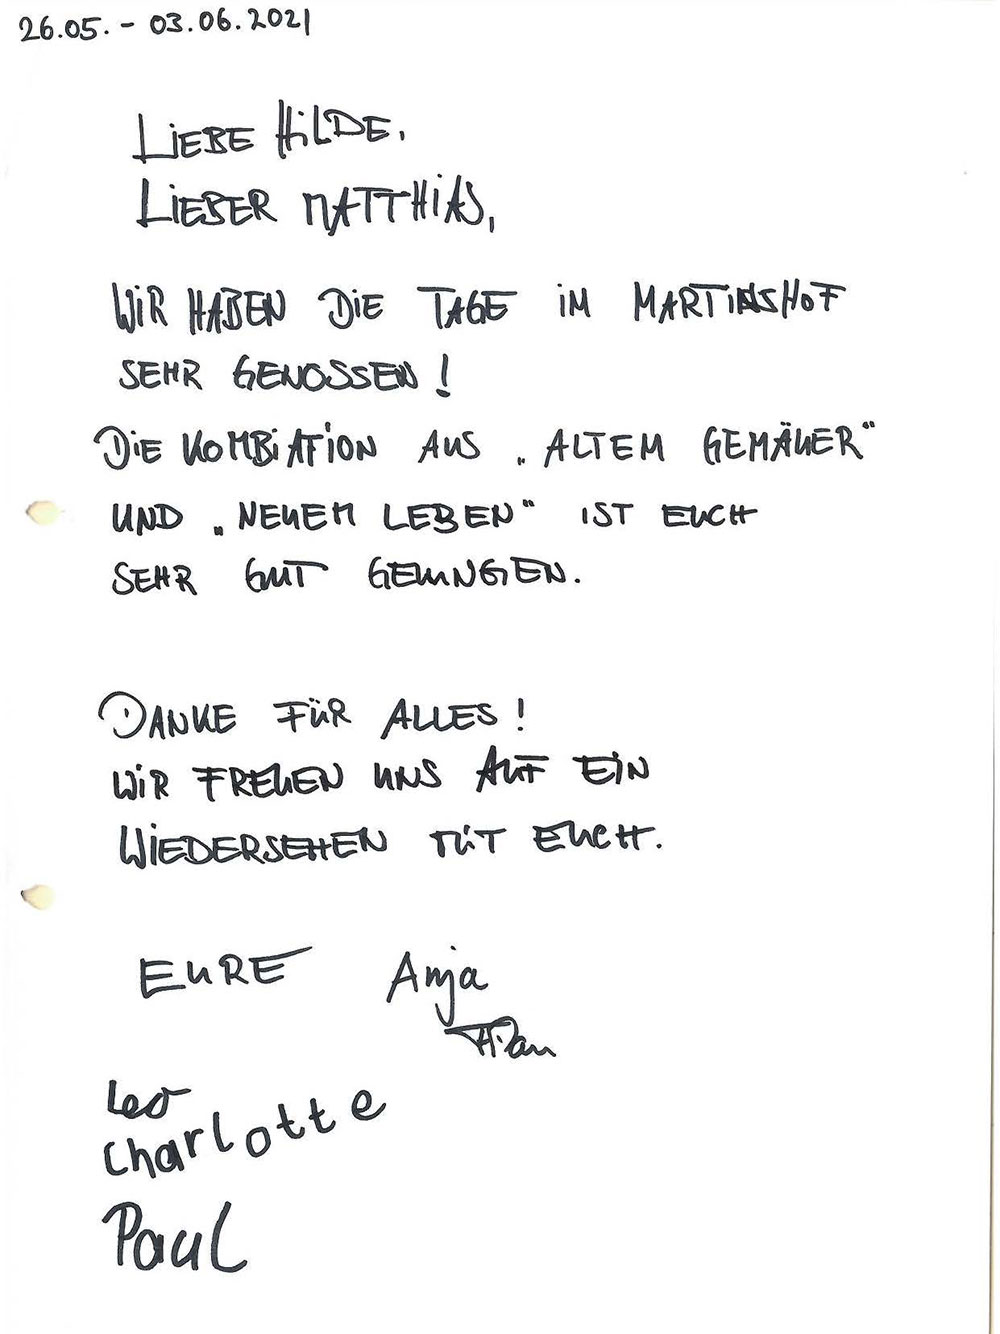 26.05. - 03.06.2021
LiEBE HiLDE,
LiEBER MATTHiAS,
WiR HABEN DiE TAGE iM MARTiNSHOF
SEHR GENOSSEN!
DiE KOMBiATiON AUS „ALTEM GEMÄUER“
UND „NEUEM LEBEN“ IST EUCH
SEHR GUT GELUNGEN.
DANKE FÜR ALLES!
WiR FREUEN UNS AUF EiN
WiEDERSEHEN MiT EUCH.
EURE Anja
Leo
Charlotte
Paul